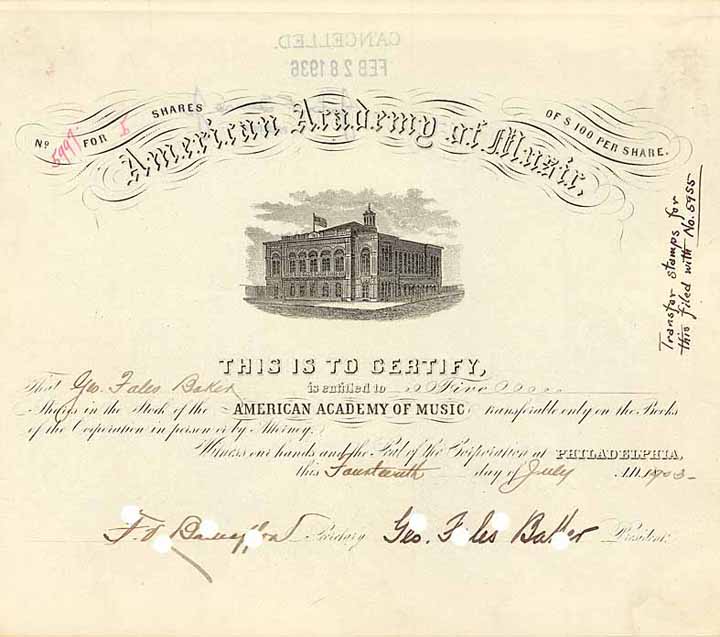 CANCELLED.
FEB 28 1936
No 5997 FOR 5 SHARES
American Academy of Music,
OF $ 100 PER SHARE.
Transfer stamps for
this filed with No. 5955
THIS IS TO CERTIFY,
That Geo. Fales Baker is entitled to Five
Shares in the Stock of the AMERICAN ACADEMY OF MUSIC transferable only on the Books
of the Corporation in person or by Attorney.
Witness our hands and the Seal of the Corporation at PHILADELPHIA,
this Fourteenth day of July A.D. 1903
Secretary Geo. Fales Baker President